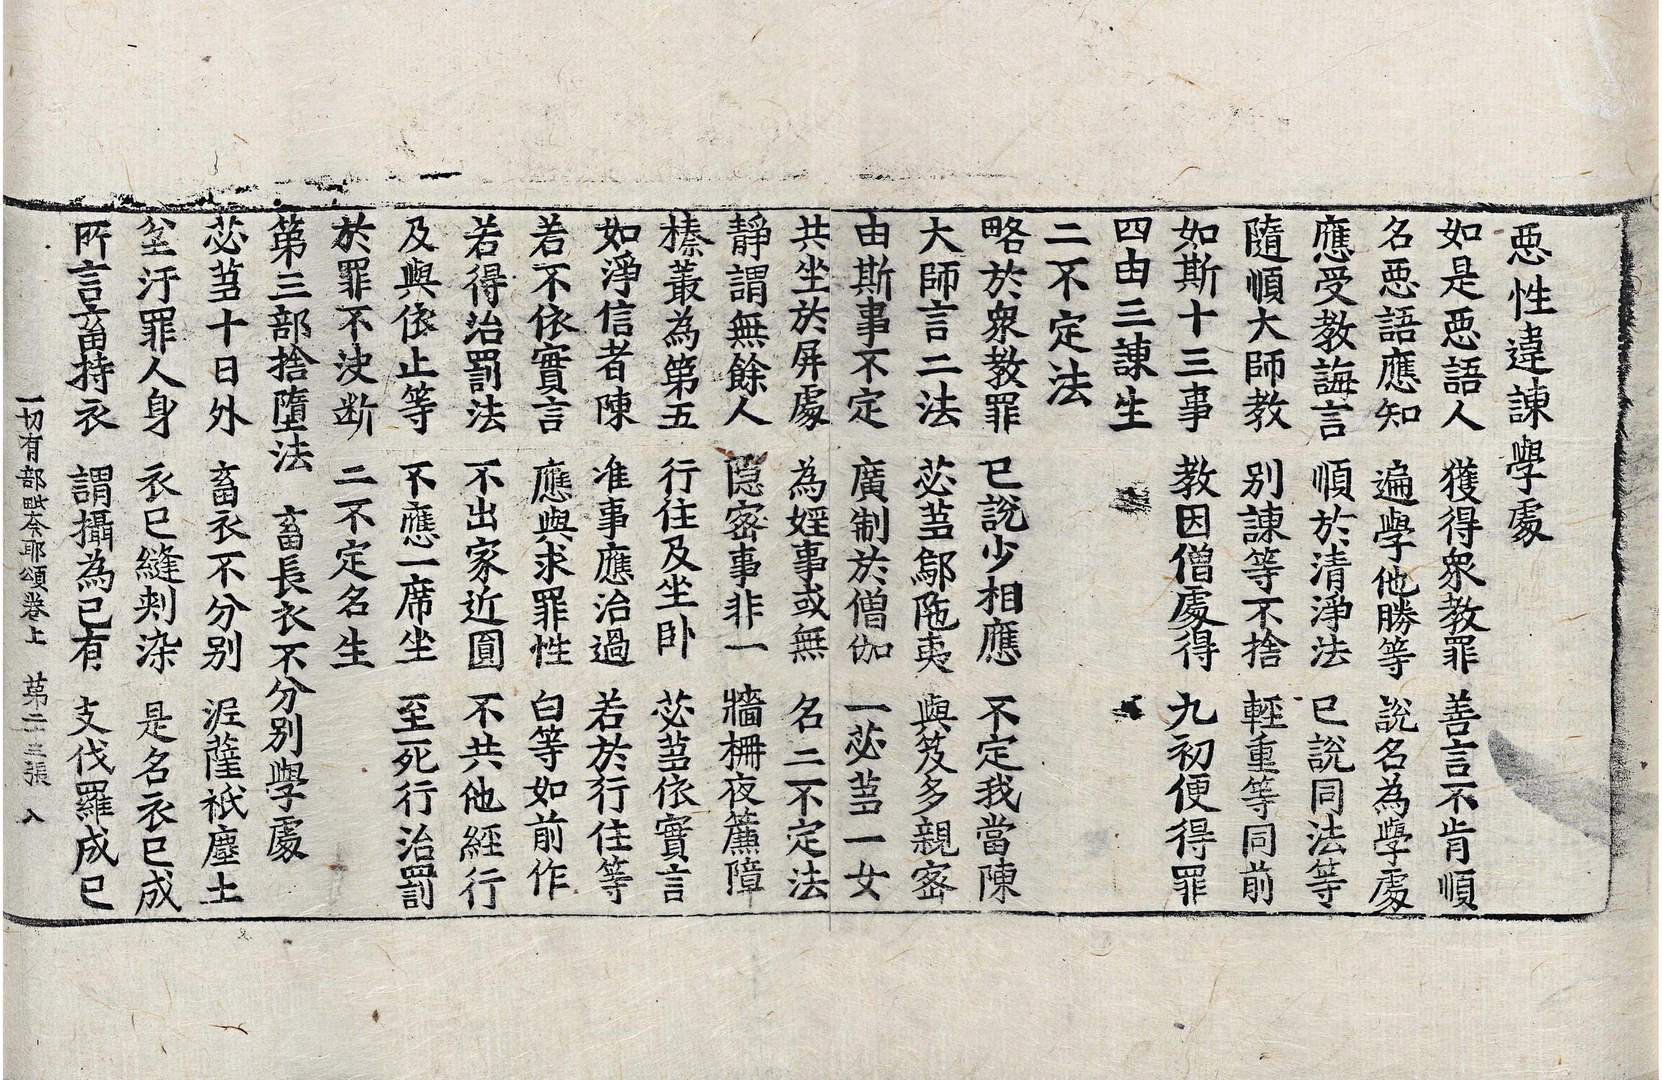 惡性違諫學處
如是惡語人 獲得眾教罪 善言不肯順
名惡語應知 遍學他勝等 說名為學處
應受教誨言 順於清淨法 已說同法等
隨順大師教 別諫等不捨 輕重等同前
如斯十三事 教因僧處得 九初便得罪
四由三諫生
二不定法
略於眾教罪 已說少相應 不定我當陳
大師言二法 苾芻鄔陁夷 與笈多親密
由斯事不定 廣制於僧伽 一苾芻一女
共坐於屏處 為婬事或無 名二不定法
靜謂無餘人 隱密事非一 牆柵夜簾障
榛叢為第五 行住及坐臥 苾芻依實言
如淨信者陳 准事應治過 若於行住等
若不依實言 應與求罪性 白等如前作
若得治罰法 不出家近圓 不共他經行
及與依止等 不應一席坐 至死行治罰
於罪不決断 二不定名生
第三部捨墮法 畜長衣不分別學處
苾芻十日外 畜衣不分別 泥薩祇塵土
坌汙罪人身 衣已縫刺染 是名衣已成
所言畜持衣 謂攝為已有 支伐羅成已
一切有部毗奈耶頌卷上 苐二三張 入